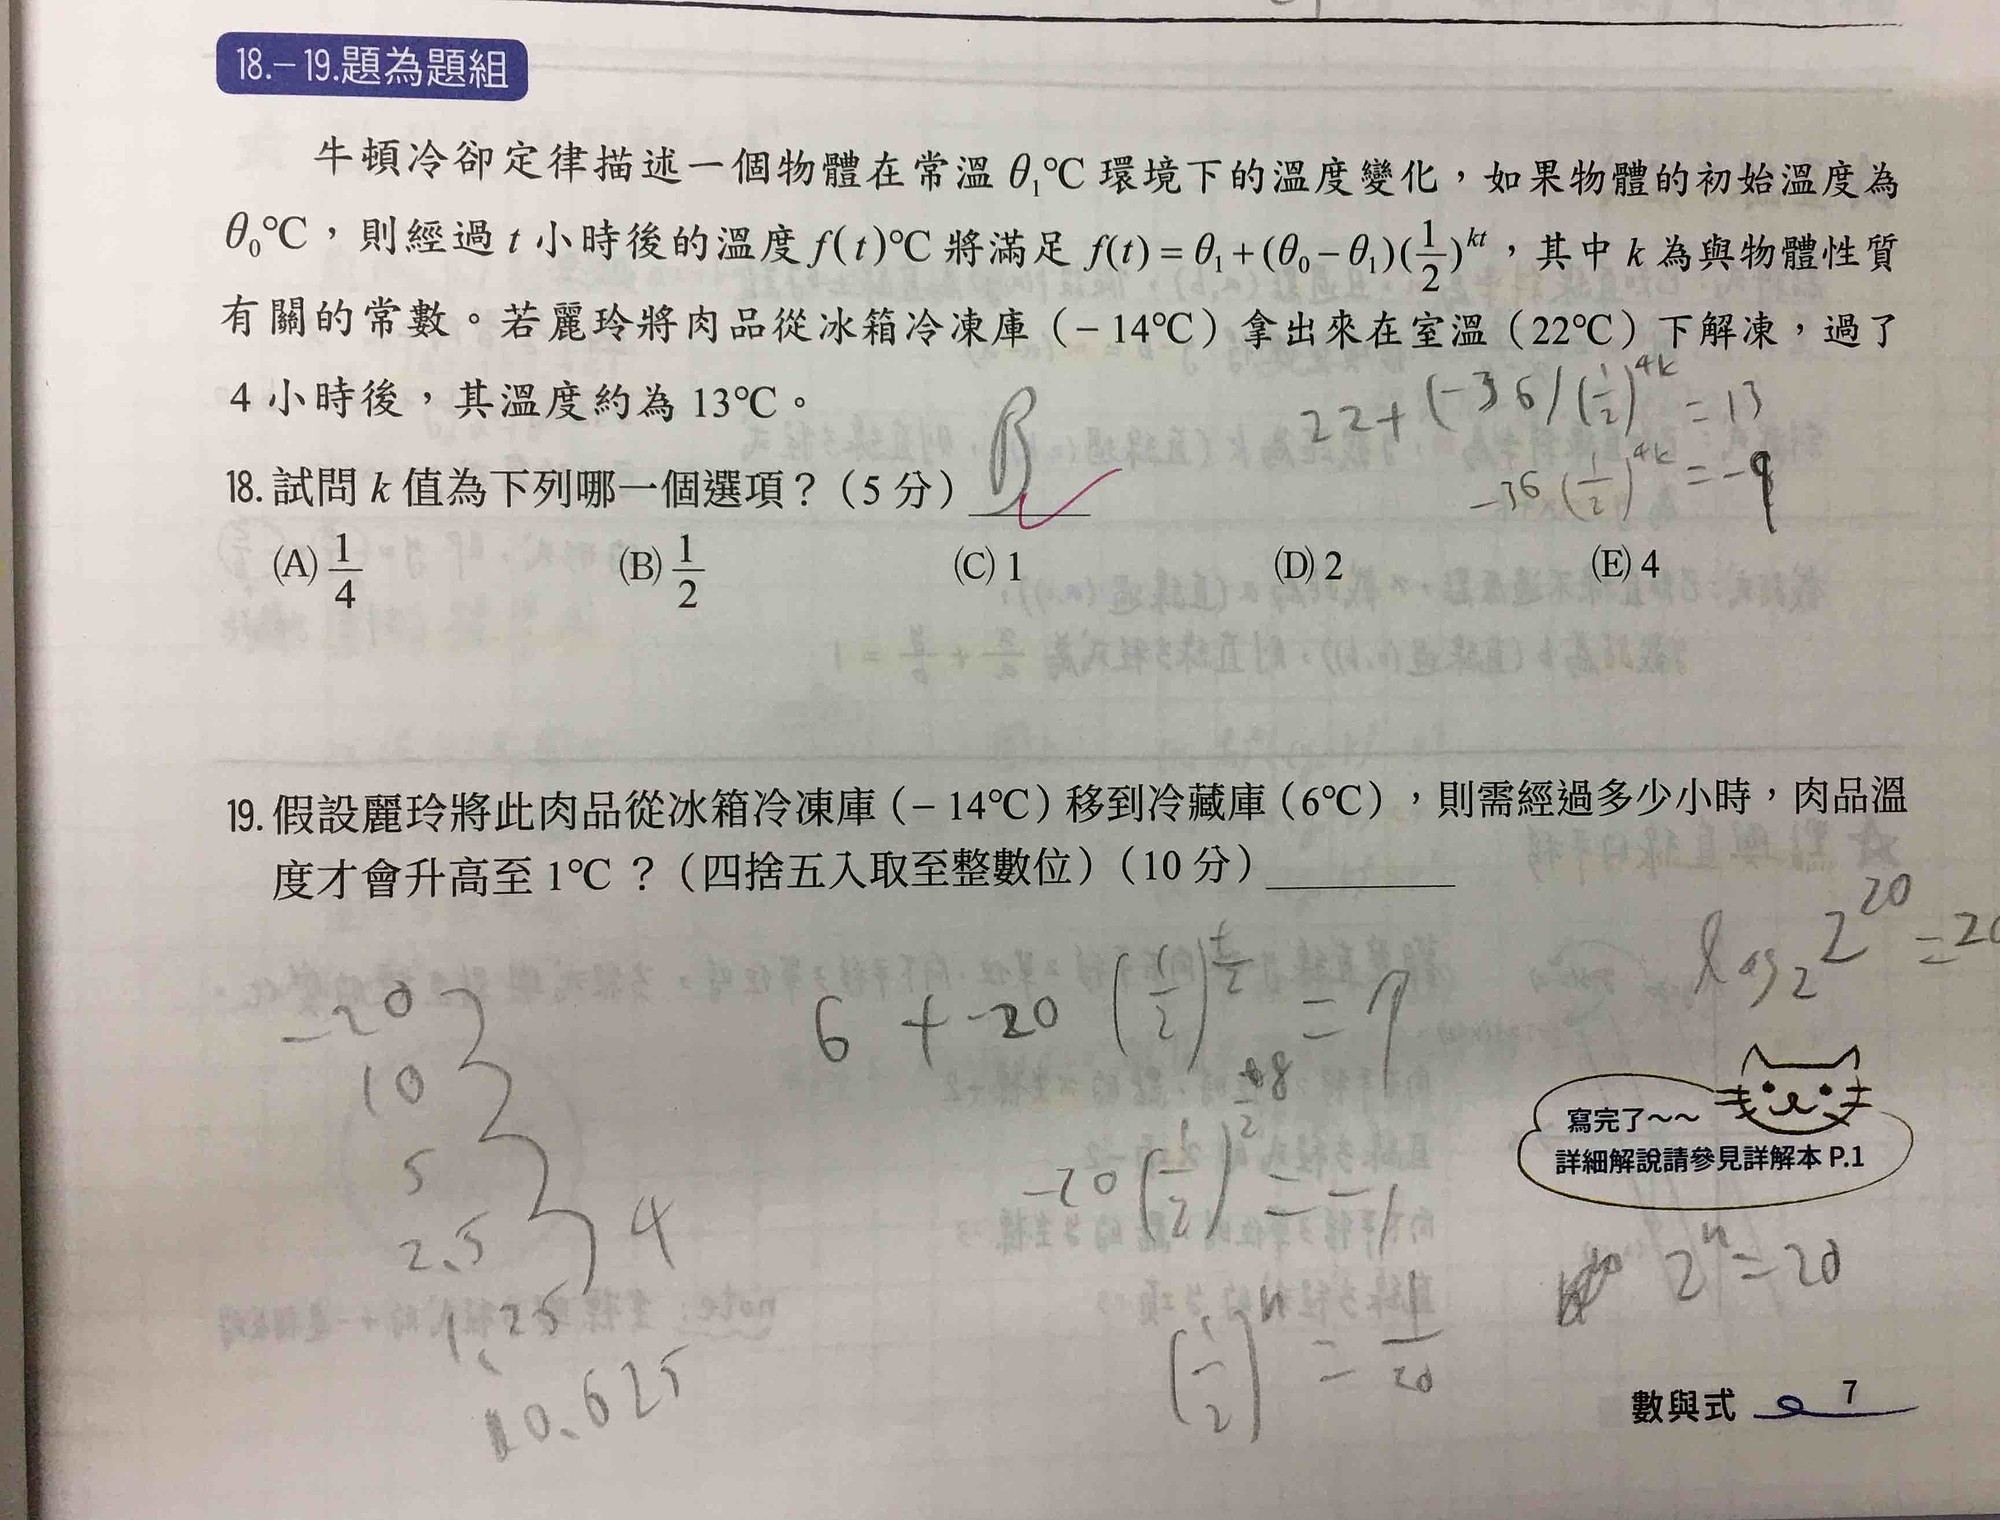 18.－19.題為題組
牛頓冷卻定律描述一個物體在常溫 θ₁℃ 環境下的溫度變化，如果物體的初始溫度為
θ₀℃，則經過 t 小時後的溫度 f(t)℃ 將滿足 f(t) = θ₁ + (θ₀ − θ₁)(1/2)^kt，其中 k 為與物體性質
有關的常數。若麗玲將肉品從冰箱冷凍庫（－14℃）拿出來在室溫（22℃）下解凍，過了
4 小時後，其溫度約為 13℃。
22+(-36)(1/2)^4k = 13
-36(1/2)^4k = -9
18. 試問 k 值為下列哪一個選項？（5 分） B
(A) 1/4 (B) 1/2 (C) 1 (D) 2 (E) 4
19. 假設麗玲將此肉品從冰箱冷凍庫（－14℃）移到冷藏庫（6℃），則需經過多少小時，肉品溫
度才會升高至 1℃？（四捨五入取至整數位）（10 分）
log₂2^20 = 20
-20
10
5
2.5
4
1.25
0.625
6 + -20 (1/2)^t/2 = 1
-20 (1/2) = -
(1/2)^n = 1/20
2^n = 20
寫完了～～
詳細解說請參見詳解本 P.1
數與式 7